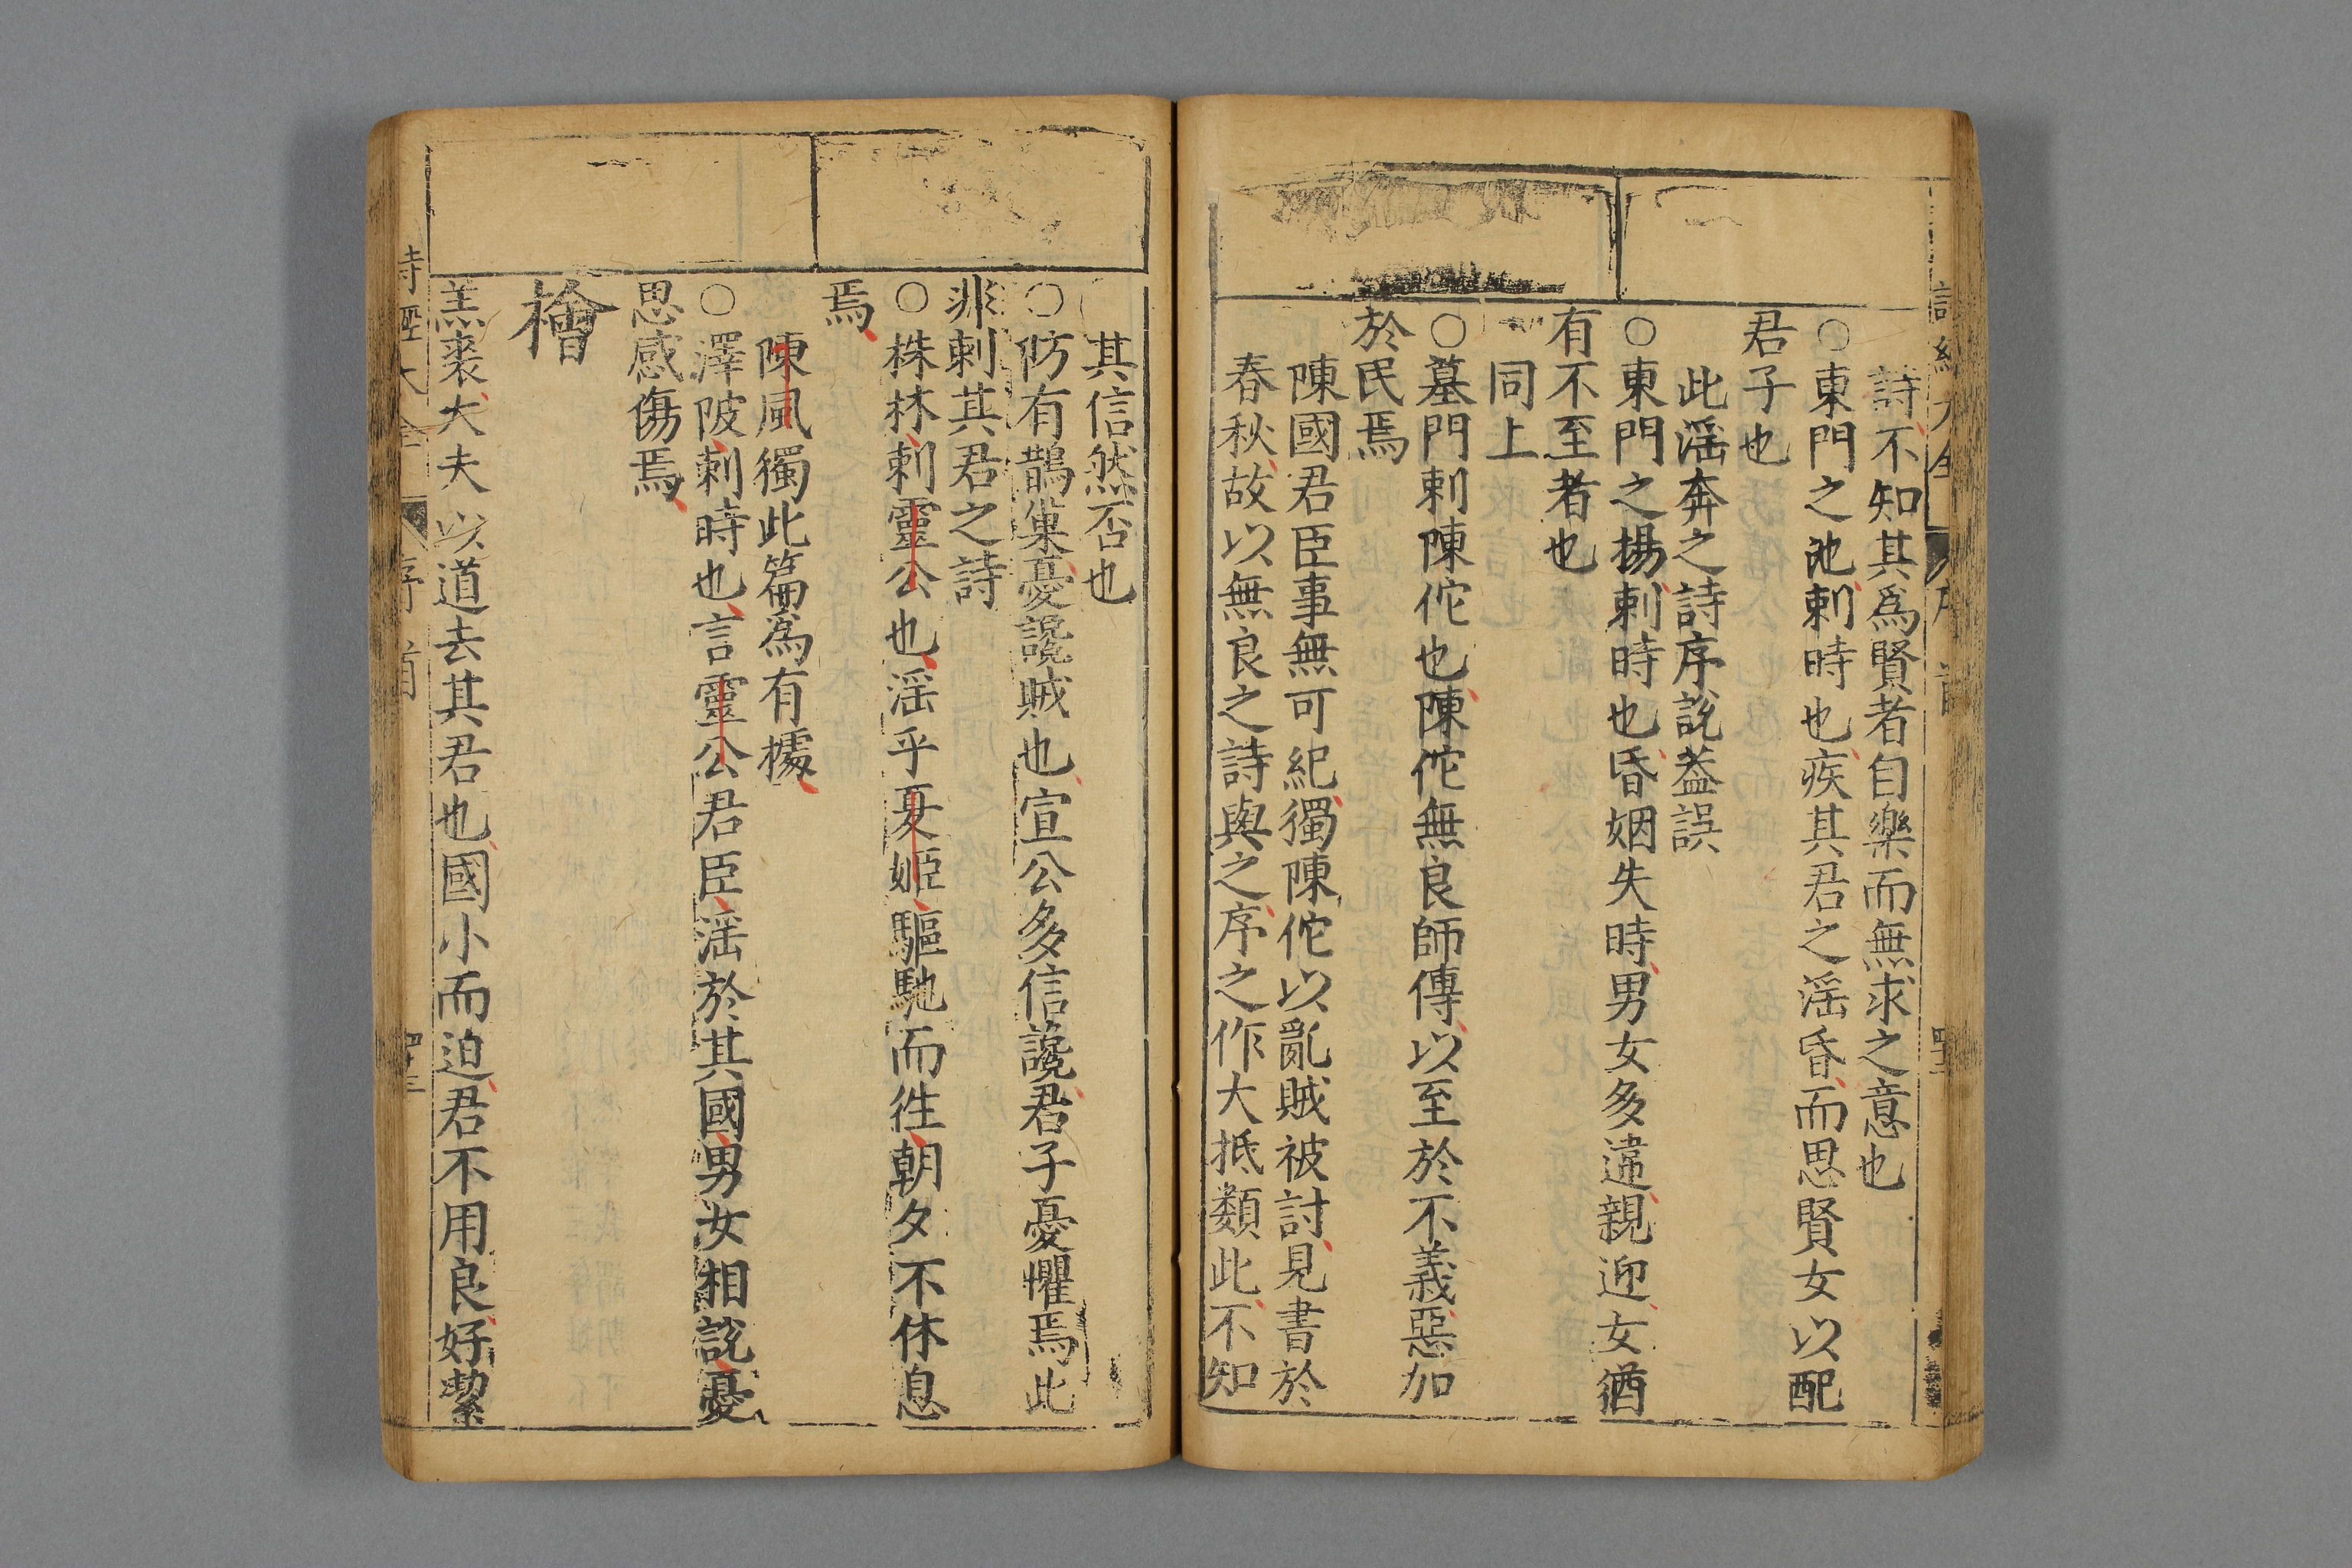 詩不知其爲賢者自樂而無求之意也
○東門之池刺時也疾其君之滛昏而思賢女以配
君子也
此滛奔之詩序說蓋誤
○東門之楊刺時也昏姻失時男女多違親迎女猶
有不至者也
同上
○墓門刺陳佗也陳佗無良師傳以至於不義惡加
於民焉
陳國君臣事無可紀獨陳佗以亂賊被討見書於
春秋故以無良之詩與之序之作大抵類此不知
其信然否也
○防有鵲巢憂讒賊也宣公多信讒君子憂懼焉此
非刺其君之詩
○株林刺靈公也滛乎夏姬驅馳而徃朝夕不休息
焉
陳風獨此篇爲有據
○澤陂刺時也言靈公君臣滛於其國男女相說憂
思感傷焉
檜
羔裘大夫以道去其君也國小而迫君不用良好潔